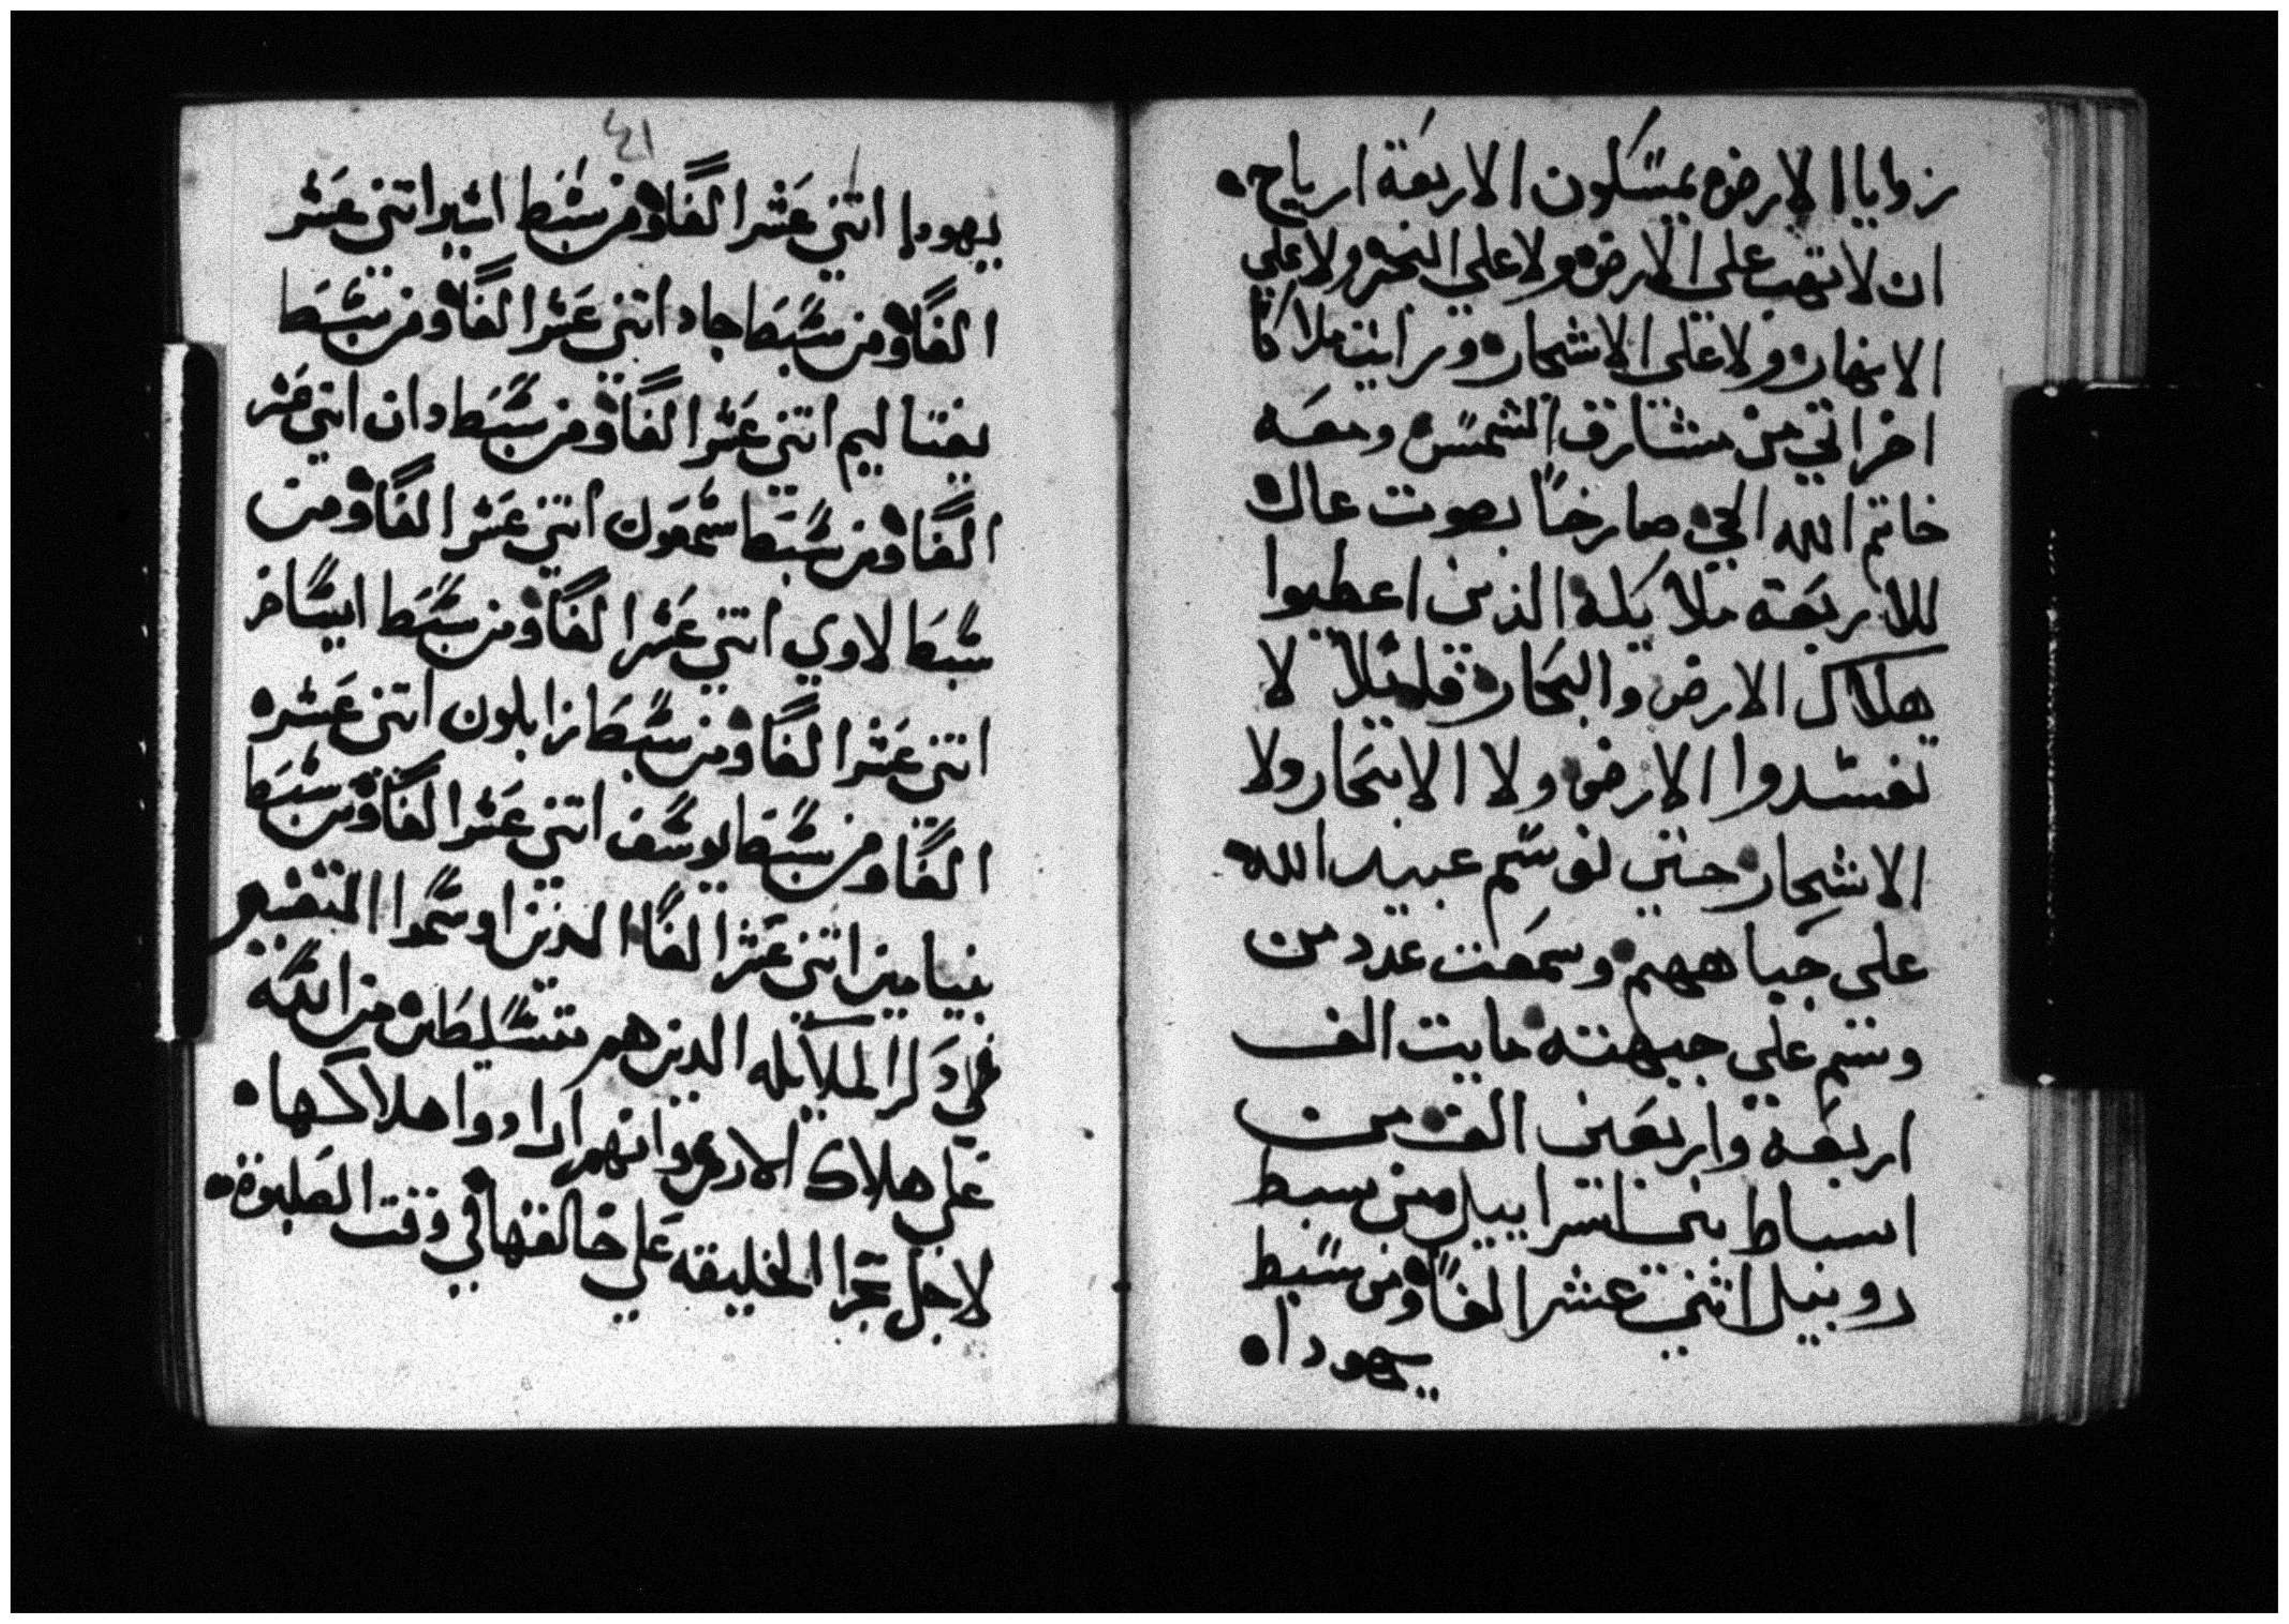 زوايا الارض يمسكون الاربعة ارياح.
ان لا تهب على الارض ولا على البحر ولا على
الانهار ولا على الاشجار ورايت ملاكا
اخر اتي من مشارق الشمس ومعه
خاتم الله الحي صارخا بصوت عال
للاربعة ملايكة الذين اعطيوا
هلاك الارض والبحار قايلا لا
تفسدوا الارض ولا الابحار ولا
الاشجار حتي نوسم عبيد الله
علي جباههم وسمعت عدد من
وسم علي جبهته مايت الف
اربعة واربعين الف من
اسباط بني اسراييل من سبط
روبيل اثني عشر الفا ومن سبط
يهودا
٤١
يهودا اتني عشر الفا ومن سبط اشير اتني عشر
الفا ومن سبط جاد اتني عشر الفا ومن سبط
يفتاليم اتني عشر الفا ومن سبط دان اتني عشر
الفا ومن سبط شمعون اتني عشر الفا ومن
سبط لاوي اتني عشر الفا ومن سبط ايساخر
اتني عشر الفا ومن سبط زابلون اتني عشر
الفا ومن سبط يوسف اتني عشر الفا ومن سبط
بنيامين اتني عشر الفا الدين اوسموا التفسير
دكر الملايكه الدين هم متسلطين من الله
علي هلاك الارض وانهم ارادوا هلاكها.
لاجل تجرا الخليقه علي خالقها في وقت الصلبوة.